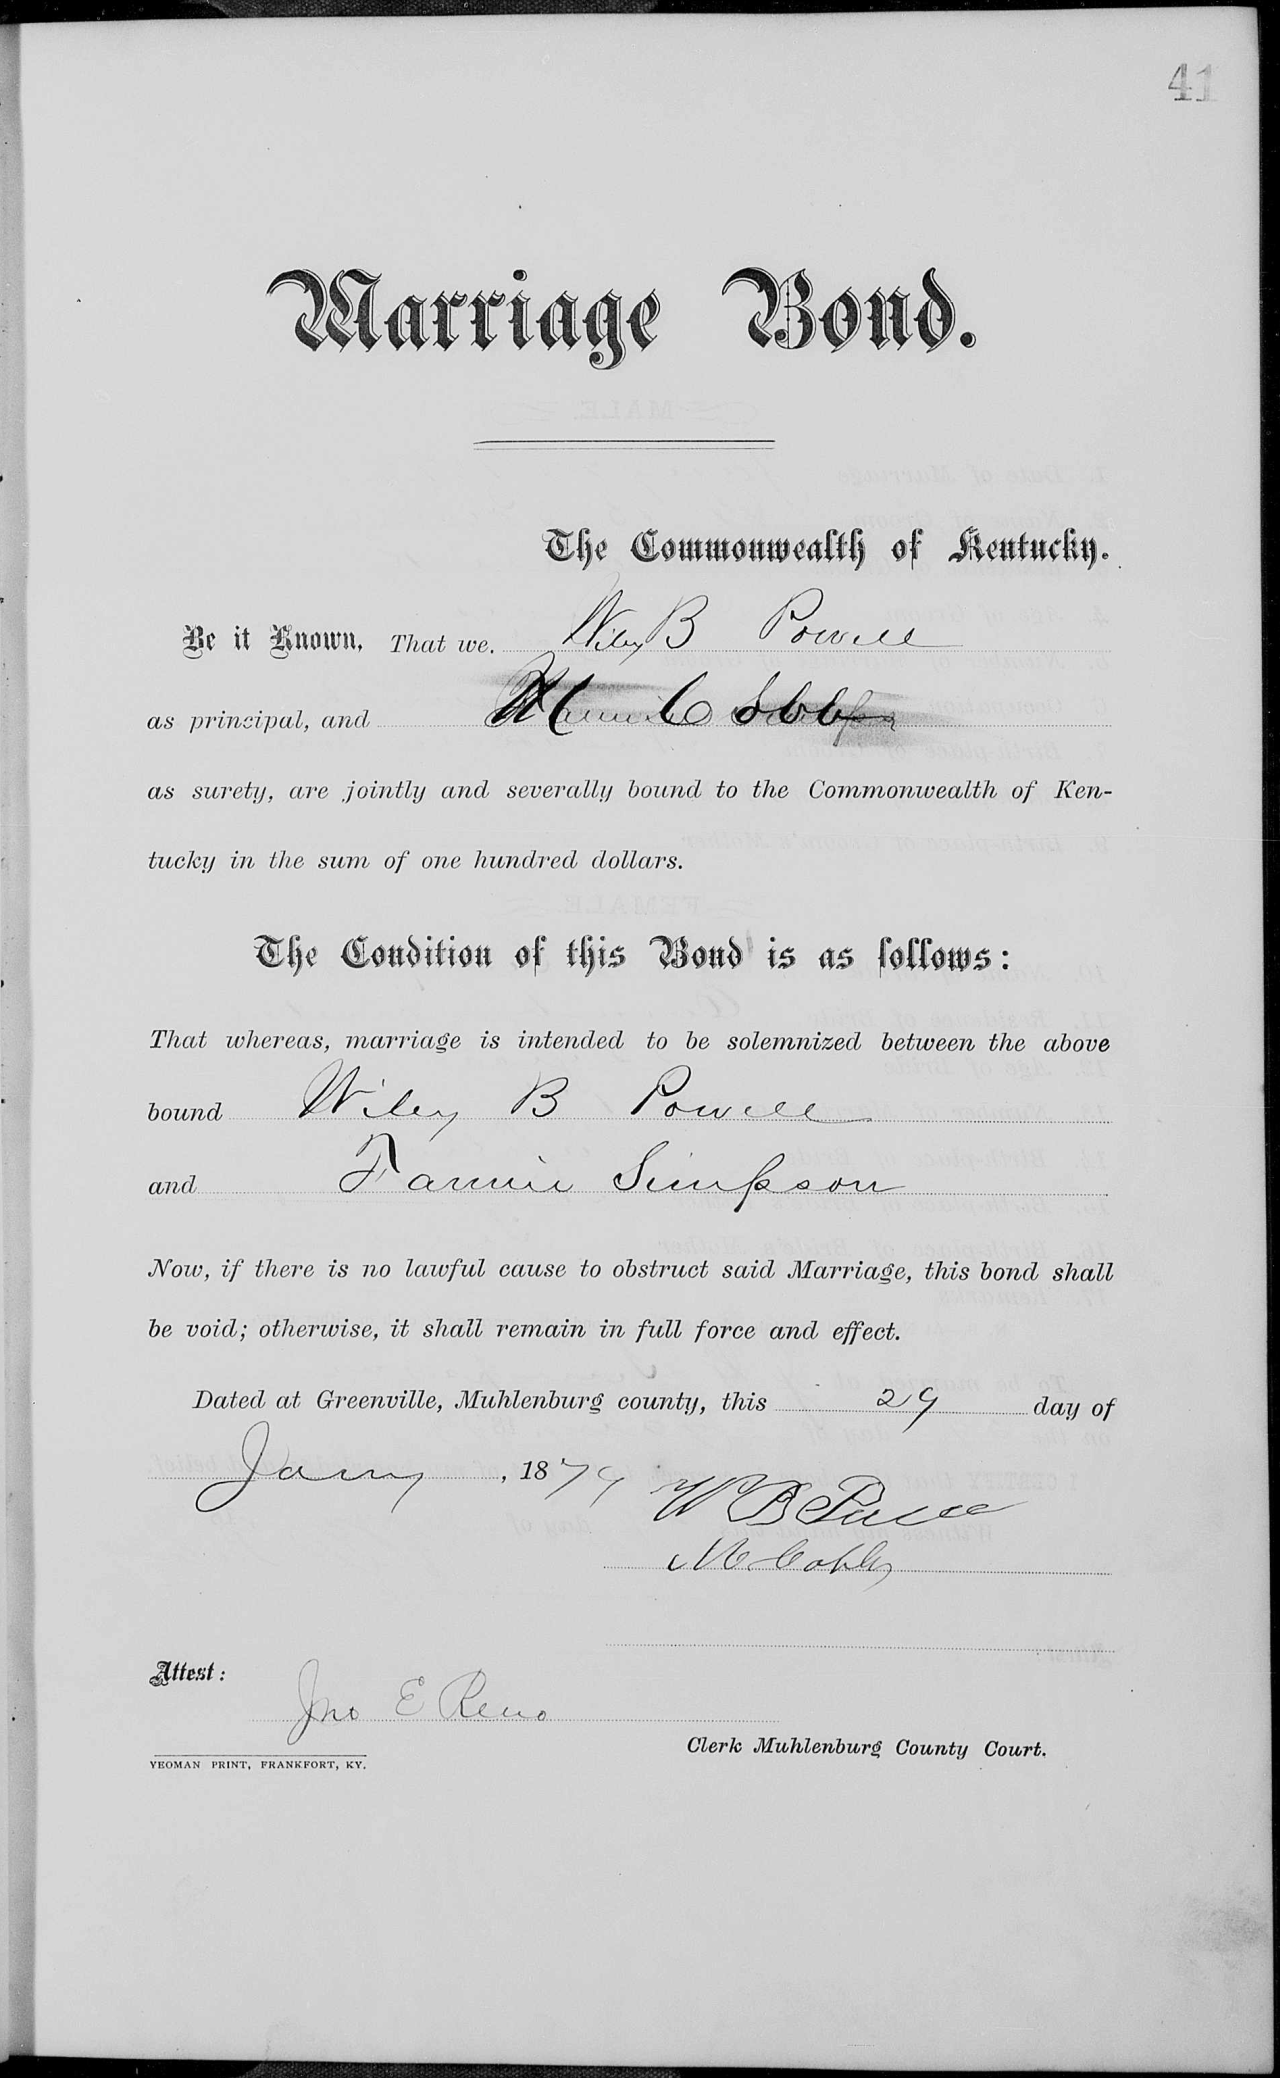 41
Marriage Bond.
The Commonwealth of Kentucky.
Be it Known, That we, Wiley B Powell
as principal, and
as surety, are jointly and severally bound to the Commonwealth of Ken-
tucky in the sum of one hundred dollars.
The Condition of this Bond is as follows:
That whereas, marriage is intended to be solemnized between the above
bound Wiley B Powell
and Fannie Simpson
Now, if there is no lawful cause to obstruct said Marriage, this bond shall
be void; otherwise, it shall remain in full force and effect.
Dated at Greenville, Muhlenburg county, this 29 day of
Jany, 1879
W B
M
Attest:
Jno E Reno
Clerk Muhlenburg County Court.
YEOMAN PRINT, FRANKFORT, KY.